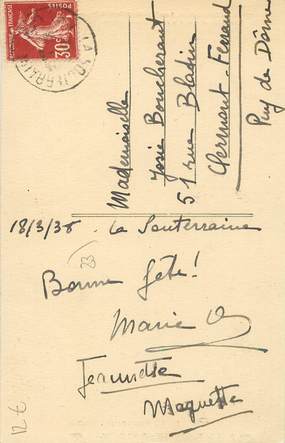 POSTES
30c
LA SOUTERRAINE
Mademoiselle
Josie Boucherant
51 rue Blatin
Clermont-Ferrand
Puy de Dôme
18/3/38 La Souterraine
23
Bonne fête!
Marie
Jeannette
Maguette
12 €